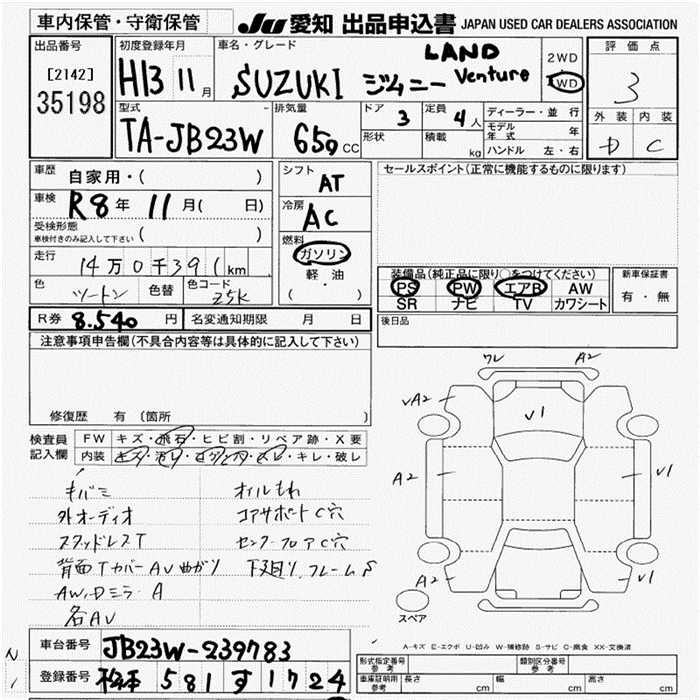 車内保管・守衛保管
JU 愛知 出品申込書 JAPAN USED CAR DEALERS ASSOCIATION
出品番号
[2142]
35198
初度登録年月
H13 11 月
車名・グレード
SUZUKI ジムニー LAND Venture
2WD
4WD
評価点
3
外装 内装
D C
型式
TA-JB23W
排気量
650 CC
ドア 3
形状
定員 4 人
積載 kg
ディーラー・並行
モデル年式 年
ハンドル 左・右
車歴 自家用・( )
車検 R8 年 11 月( 日)
受検形態
車検付きのみ記入して下さい ( )
走行 14万0千391 km
色 ツートン 色替 色コード Z5K
シフト AT
冷房 AC
燃料
ガソリン
軽油
( ・ )
セールスポイント(正常に機能するものに限ります)
装備品(純正品に限り○をつけてください)
PS PW エアB AW
SR ナビ TV カワシート
新車保証書
有・無
R券 8.540 円 名変通知期限 月 日
後日品
注意事項申告欄(不具合内容等は具体的に記入して下さい)
修復歴 有 〔箇所 〕
検査員記入欄
FW キズ・飛石・ヒビ割・リペア跡・X要
内装 キズ・汚レ・コゲ穴・スレ・キレ・破レ
キバミ
外オーディオ
スタッドレスT
背面TカバーAU曲がり
AW,Dミラ-A
各AU
オイルもれ
コアサポートC穴
センターフロアC穴
下廻り,フレームS
ワレ A2
vA2
v1
A2
v1
A2
v1
スペア
A-キズ E-エクボ U-凹み W-補修跡 S-サビ C-腐食 XX-交換済
車台番号 JB23W-239783
登録番号 松本 581 す 1724
形式指定番号 参考
類別区分番号 参考
車庫証明用 参考 長さ cm 幅 cm 高さ cm